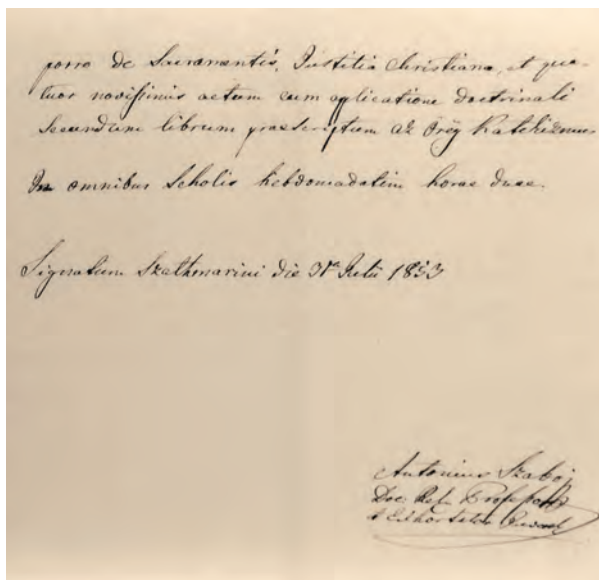 porro de Sacramentis, Justitia Christiana, et qua-
tuor novissimis actum cum applicatione doctrinali
Secundum librum praescriptum Az Öreg Katekizmus
In omnibus Scholis hebdomadatim horae duae.
Signatum Szathmarini die 31a Julii 1853
Antonius Szabó
Doc. Rel. Professor
et Exhortator